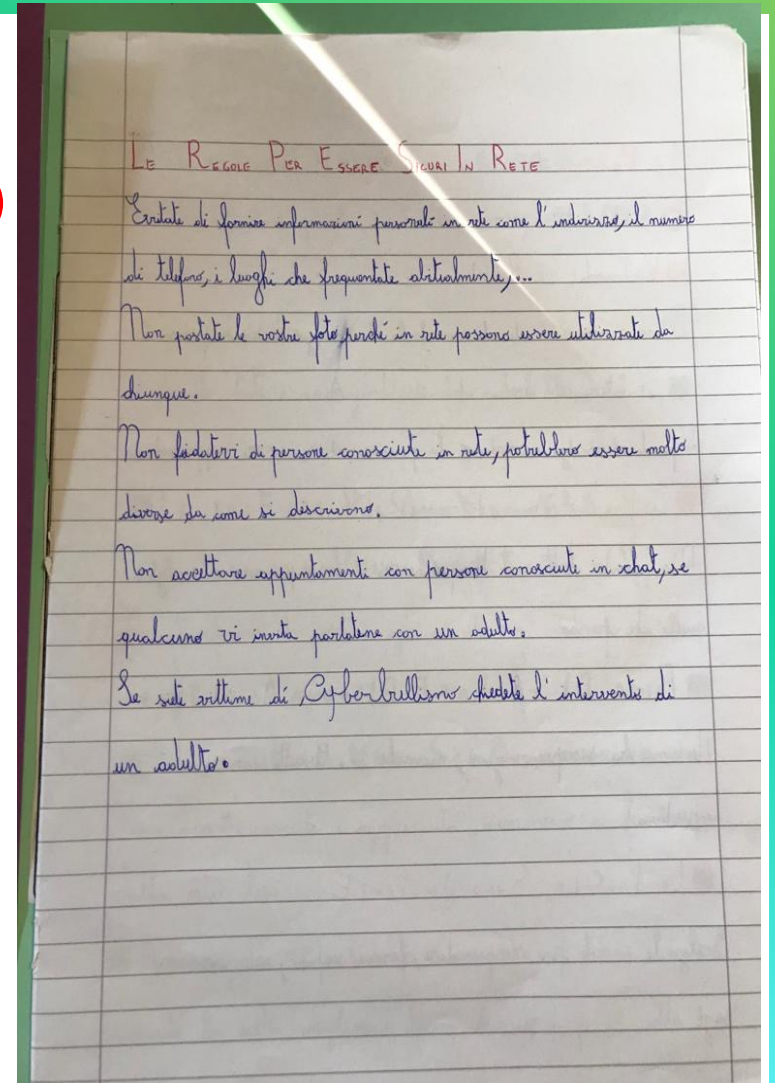 Le Regole Per Essere Sicuri In Rete
Evitate di fornire informazioni personali in rete come l'indirizzo, il numero
di telefono, i luoghi che frequentate abitualmente,...
Non postate le vostre foto, perché in rete possono essere utilizzate da
chiunque.
Non fidatevi di persone conosciute in rete, potrebbero essere molto
diverse da come si descrivono.
Non accettare appuntamenti con persone conosciute in chat, se
qualcuno vi invita parlatene con un adulto.
Se siete vittime di Cyberbullismo chiedete l'intervento di
un adulto.